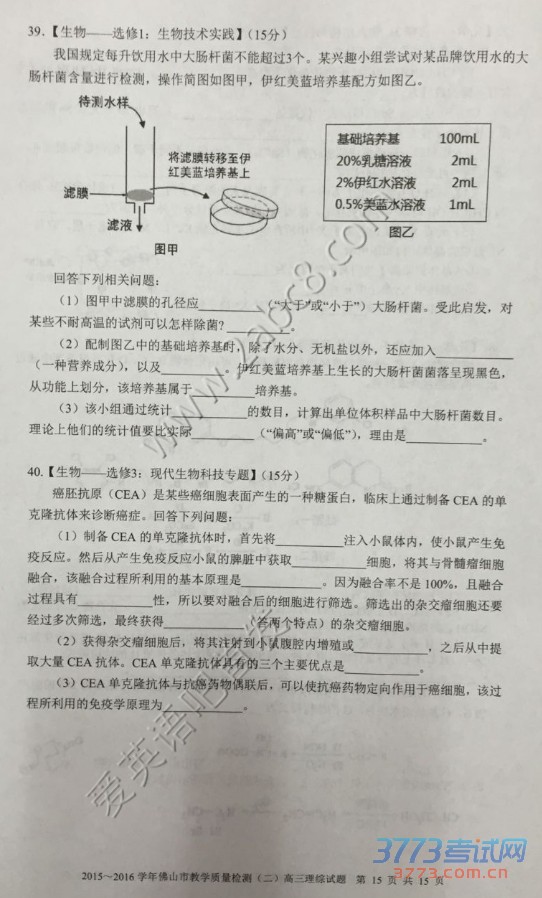 39.【生物——选修1：生物技术实践】（15分）
我国规定每升饮用水中大肠杆菌不能超过3个。某兴趣小组尝试对某品牌饮用水的大
肠杆菌含量进行检测，操作简图如图甲，伊红美蓝培养基配方如图乙。
待测水样
将滤膜转移至伊
红美蓝培养基上
滤膜
滤液
图甲
基础培养基 100mL
20%乳糖溶液 2mL
2%伊红水溶液 2mL
0.5%美蓝水溶液 1mL
图乙
回答下列相关问题：
（1）图甲中滤膜的孔径应__________（“大于”或“小于”）大肠杆菌。受此启发，对
某些不耐高温的试剂可以怎样除菌？__________。
（2）配制图乙中的基础培养基时，除了水分、无机盐以外，还应加入__________
（一种营养成分），以及__________。伊红美蓝培养基上生长的大肠杆菌菌落呈现黑色，
从功能上划分，该培养基属于__________培养基。
（3）该小组通过统计__________的数目，计算出单位体积样品中大肠杆菌数目。
理论上他们的统计值要比实际__________（“偏高”或“偏低”），理由是__________。
40.【生物——选修3：现代生物科技专题】（15分）
癌胚抗原（CEA）是某些癌细胞表面产生的一种糖蛋白，临床上通过制备 CEA 的单
克隆抗体来诊断癌症。回答下列问题：
（1）制备 CEA 的单克隆抗体时，首先将__________注入小鼠体内，使小鼠产生免
疫反应。然后从产生免疫反应小鼠的脾脏中获取__________细胞，将其与骨髓瘤细胞
融合，该融合过程所利用的基本原理是__________。因为融合率不是 100%，且融合
过程具有__________性，所以要对融合后的细胞进行筛选。筛选出的杂交瘤细胞还要
经过多次筛选，最终获得__________（答两个特点）的杂交瘤细胞。
（2）获得杂交瘤细胞后，将其注射到小鼠腹腔内增殖或__________，之后从中提
取大量 CEA 抗体。CEA 单克隆抗体具有的三个主要优点是__________。
（3）CEA 单克隆抗体与抗癌药物偶联后，可以使抗癌药物定向作用于癌细胞，该过
程所利用的免疫学原理为__________。
www.2abc8.com
爱英语吧首发
3773考试网
www.3773.com.cn
2015～2016 学年佛山市教学质量检测（二）高三理综试题 第 15 页 共 15 页